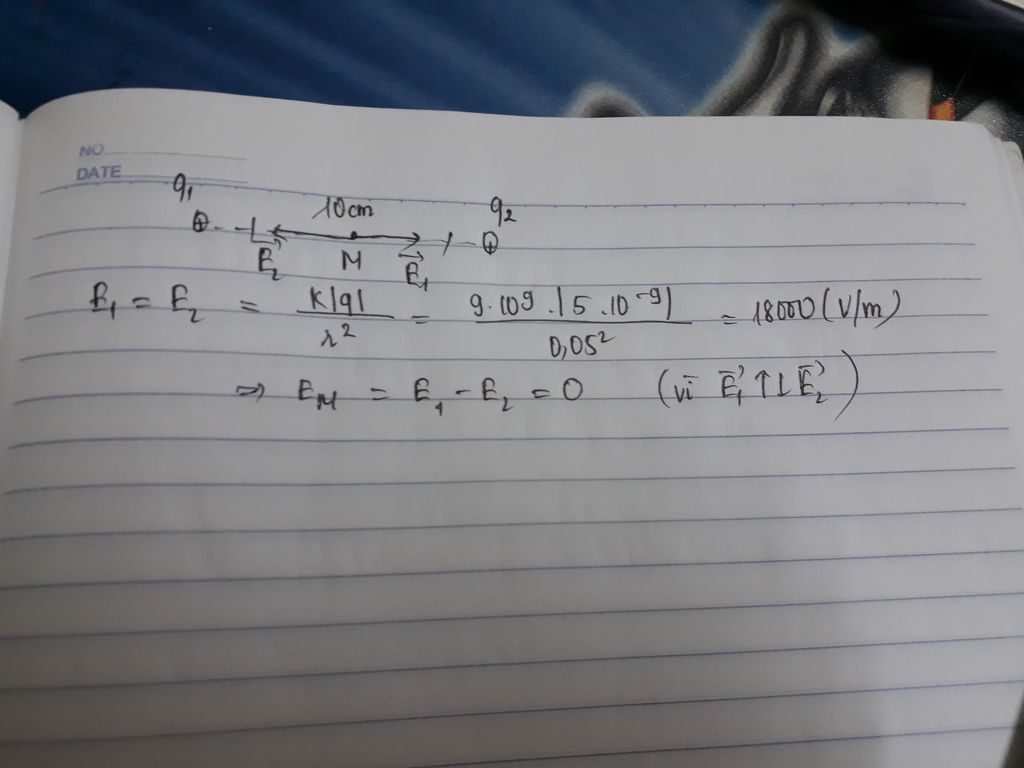 NO
DATE
q₁ 10cm q₂
⊕ ⊕
E₂⃗ M E₁⃗
E₁ = E₂ = k|q|/r² = 9.10⁹.|5.10⁻⁹|/0,05² = 18000 (V/m)
=> E_M = E₁ - E₂ = 0 (vì E₁⃗ ↑↓ E₂⃗)